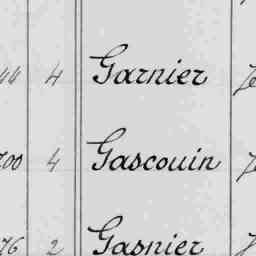 44 4 Garnier
700 4 Gascouin
76 2 Gasnier